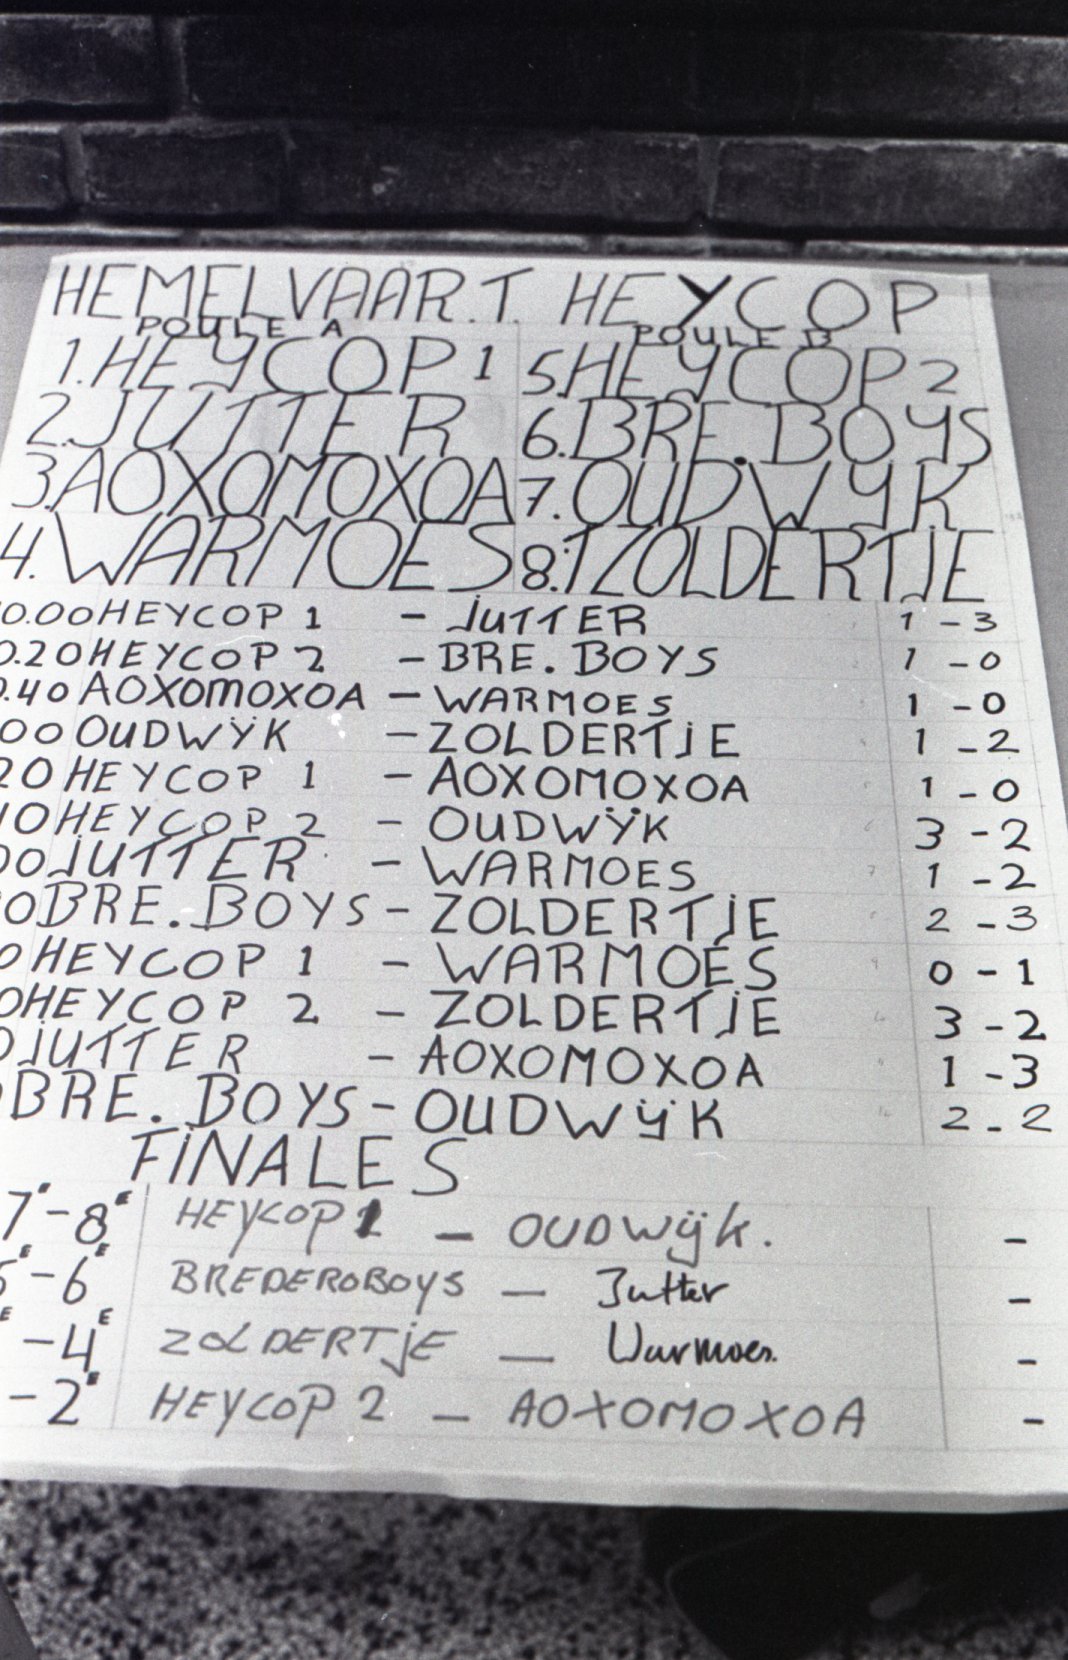 HEMELVAART.T. HEYCOP
POULE A POULE B
1.HEYCOP 1 5.HEYCOP 2
2.JUTTER 6.BRE.BOYS
3.AOXOMOXOA 7.OUDWYK
4.WARMOES 8.'TZOLDERTJE
0.00 HEYCOP 1 - JUTTER 1-3
0.20 HEYCOP 2 - BRE.BOYS 1-0
0.40 AOXOMOXOA - WARMOES 1-0
00 OUDWŸK - ZOLDERTJE 1-2
20 HEYCOP 1 - AOXOMOXOA 1-0
40 HEYCOP 2 - OUDWŸK 3-2
00 JUTTER - WARMOES 1-2
0 BRE.BOYS - ZOLDERTJE 2-3
0 HEYCOP 1 - WARMOES 0-1
0 HEYCOP 2 - ZOLDERTJE 3-2
0 JUTTER - AOXOMOXOA 1-3
BRE.BOYS - OUDWŸK 2-2
FINALES
7E-8E HEYCOP 1 - OUDWIJK. -
5E-6E BREDEROBOYS - Jutter -
E-4E ZOLDERTJE - Warmoes. -
-2E HEYCOP 2 - AOXOMOXOA -